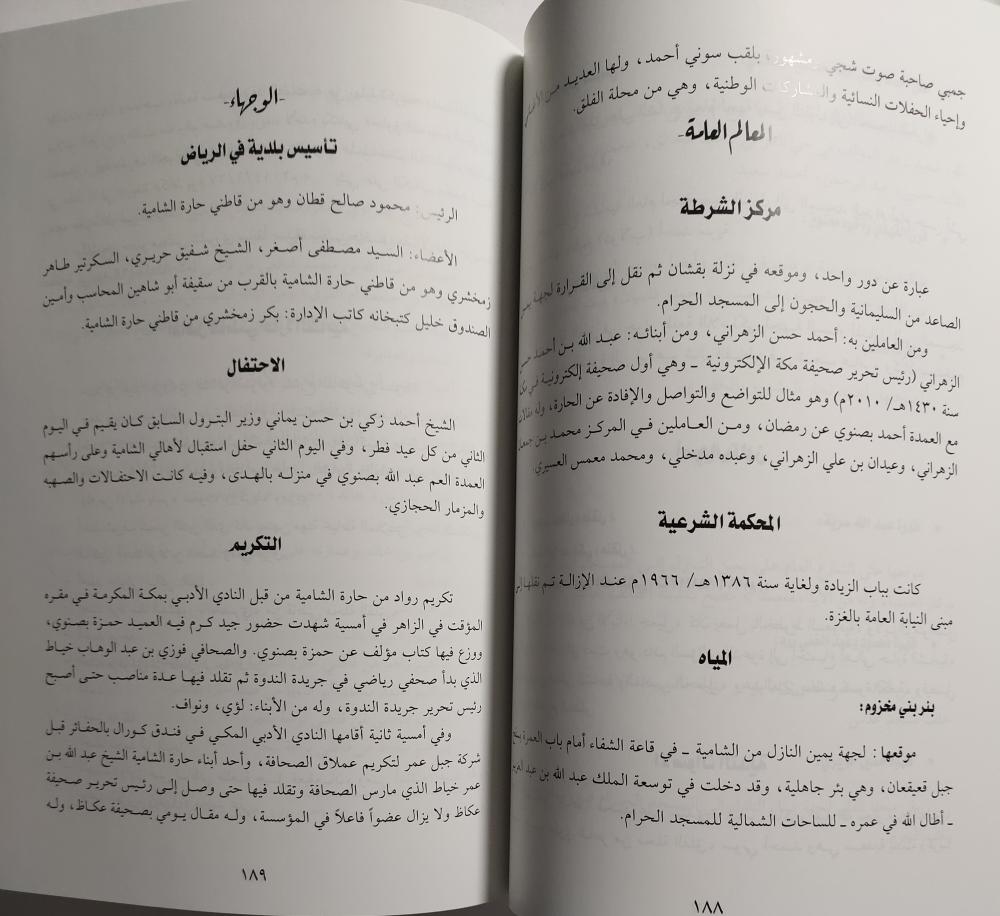 جمبي صاحبة صوت شجي ومشهورة بلقب سوني أحمد، ولها العديد من الأغاني
وإحياء الحفلات النسائية والمشاركات الوطنية، وهي من محلة الفلق.
-المعالم العامة-
مركز الشرطة
عبارة عن دور واحد، وموقعه في نزلة بقشان ثم نقل إلى القرارة لجهة يمين
الصاعد من السليمانية والحجون إلى المسجد الحرام.
ومن العاملين به: أحمد حسن الزهراني، ومن أبنائه: عبد الله بن أحمد حسن
الزهراني (رئيس تحرير صحيفة مكة الإلكترونية ـ وهي أول صحيفة إلكترونية في مكة
سنة ١٤٣٠هـ/ ٢٠١٠م) وهو مثال للتواضع والتواصل والإفادة عن الحارة، وله مقالات
مع العمدة أحمد بصنوي عن رمضان، ومن العاملين في المركز محمد بن جمعان
الزهراني، وعيدان بن علي الزهراني، وعبده مدخلي، ومحمد معمس العسيري.
المحكمة الشرعية
كانت بباب الزيادة ولغاية سنة ١٣٨٦هـ/ ١٩٦٦م عند الإزالة تم نقلها إلى
مبنى النيابة العامة بالغزة.
المياه
بئر بني مخزوم:
موقعها: لجهة يمين النازل من الشامية ـ في قاعة الشفاء أمام باب العمرة
جبل قعيقعان، وهي بئر جاهلية، وقد دخلت في توسعة الملك عبد الله بن عبد العزيز
ـ أطال الله في عمره ـ للساحات الشمالية للمسجد الحرام.
١٨٨
-الوجهاء-
تأسيس بلدية في الرياض
الرئيس: محمود صالح قطان وهو من قاطني حارة الشامية.
الأعضاء: السيد مصطفى أصغر، الشيخ شفيق حريري، السكرتير طاهر
زمخشري وهو من قاطني حارة الشامية بالقرب من سقيفة أبو شاهين المحاسب وأمين
الصندوق خليل كتبخانه كاتب الإدارة: بكر زمخشري من قاطني حارة الشامية.
الاحتفال
الشيخ أحمد زكي بن حسن يماني وزير البترول السابق كان يقيم في اليوم
الثاني من كل عيد فطر، وفي اليوم الثاني حفل استقبال لأهالي الشامية وعلى رأسهم
العمدة العم عبد الله بصنوي في منزله بالهدى، وفيه كانت الاحتفالات والصهبه
والمزمار الحجازي.
التكريم
تكريم رواد من حارة الشامية من قبل النادي الأدبي بمكة المكرمة في مقره
المؤقت في الزاهر في أمسية شهدت حضور جيد كرم فيه العميد حمزة بصنوي،
ووزع فيها كتاب مؤلف عن حمزة بصنوي. والصحافي فوزي بن عبد الوهاب خياط
الذي بدأ صحفي رياضي في جريدة الندوة ثم تقلد فيها عدة مناصب حتى أصبح
رئيس تحرير جريدة الندوة، وله من الأبناء: لؤي، ونواف.
وفي أمسية ثانية أقامها النادي الأدبي المكي في فندق كورال بالحفائر قبل
شركة جبل عمر لتكريم عملاق الصحافة، وأحد أبناء حارة الشامية الشيخ عبد الله بن
عمر خياط الذي مارس الصحافة وتقلد فيها حتى وصل إلى رئيس تحرير صحيفة
عكاظ ولا يزال عضواً فاعلاً في المؤسسة، وله مقال يومي بصحيفة عكاظ، وله
١٨٩